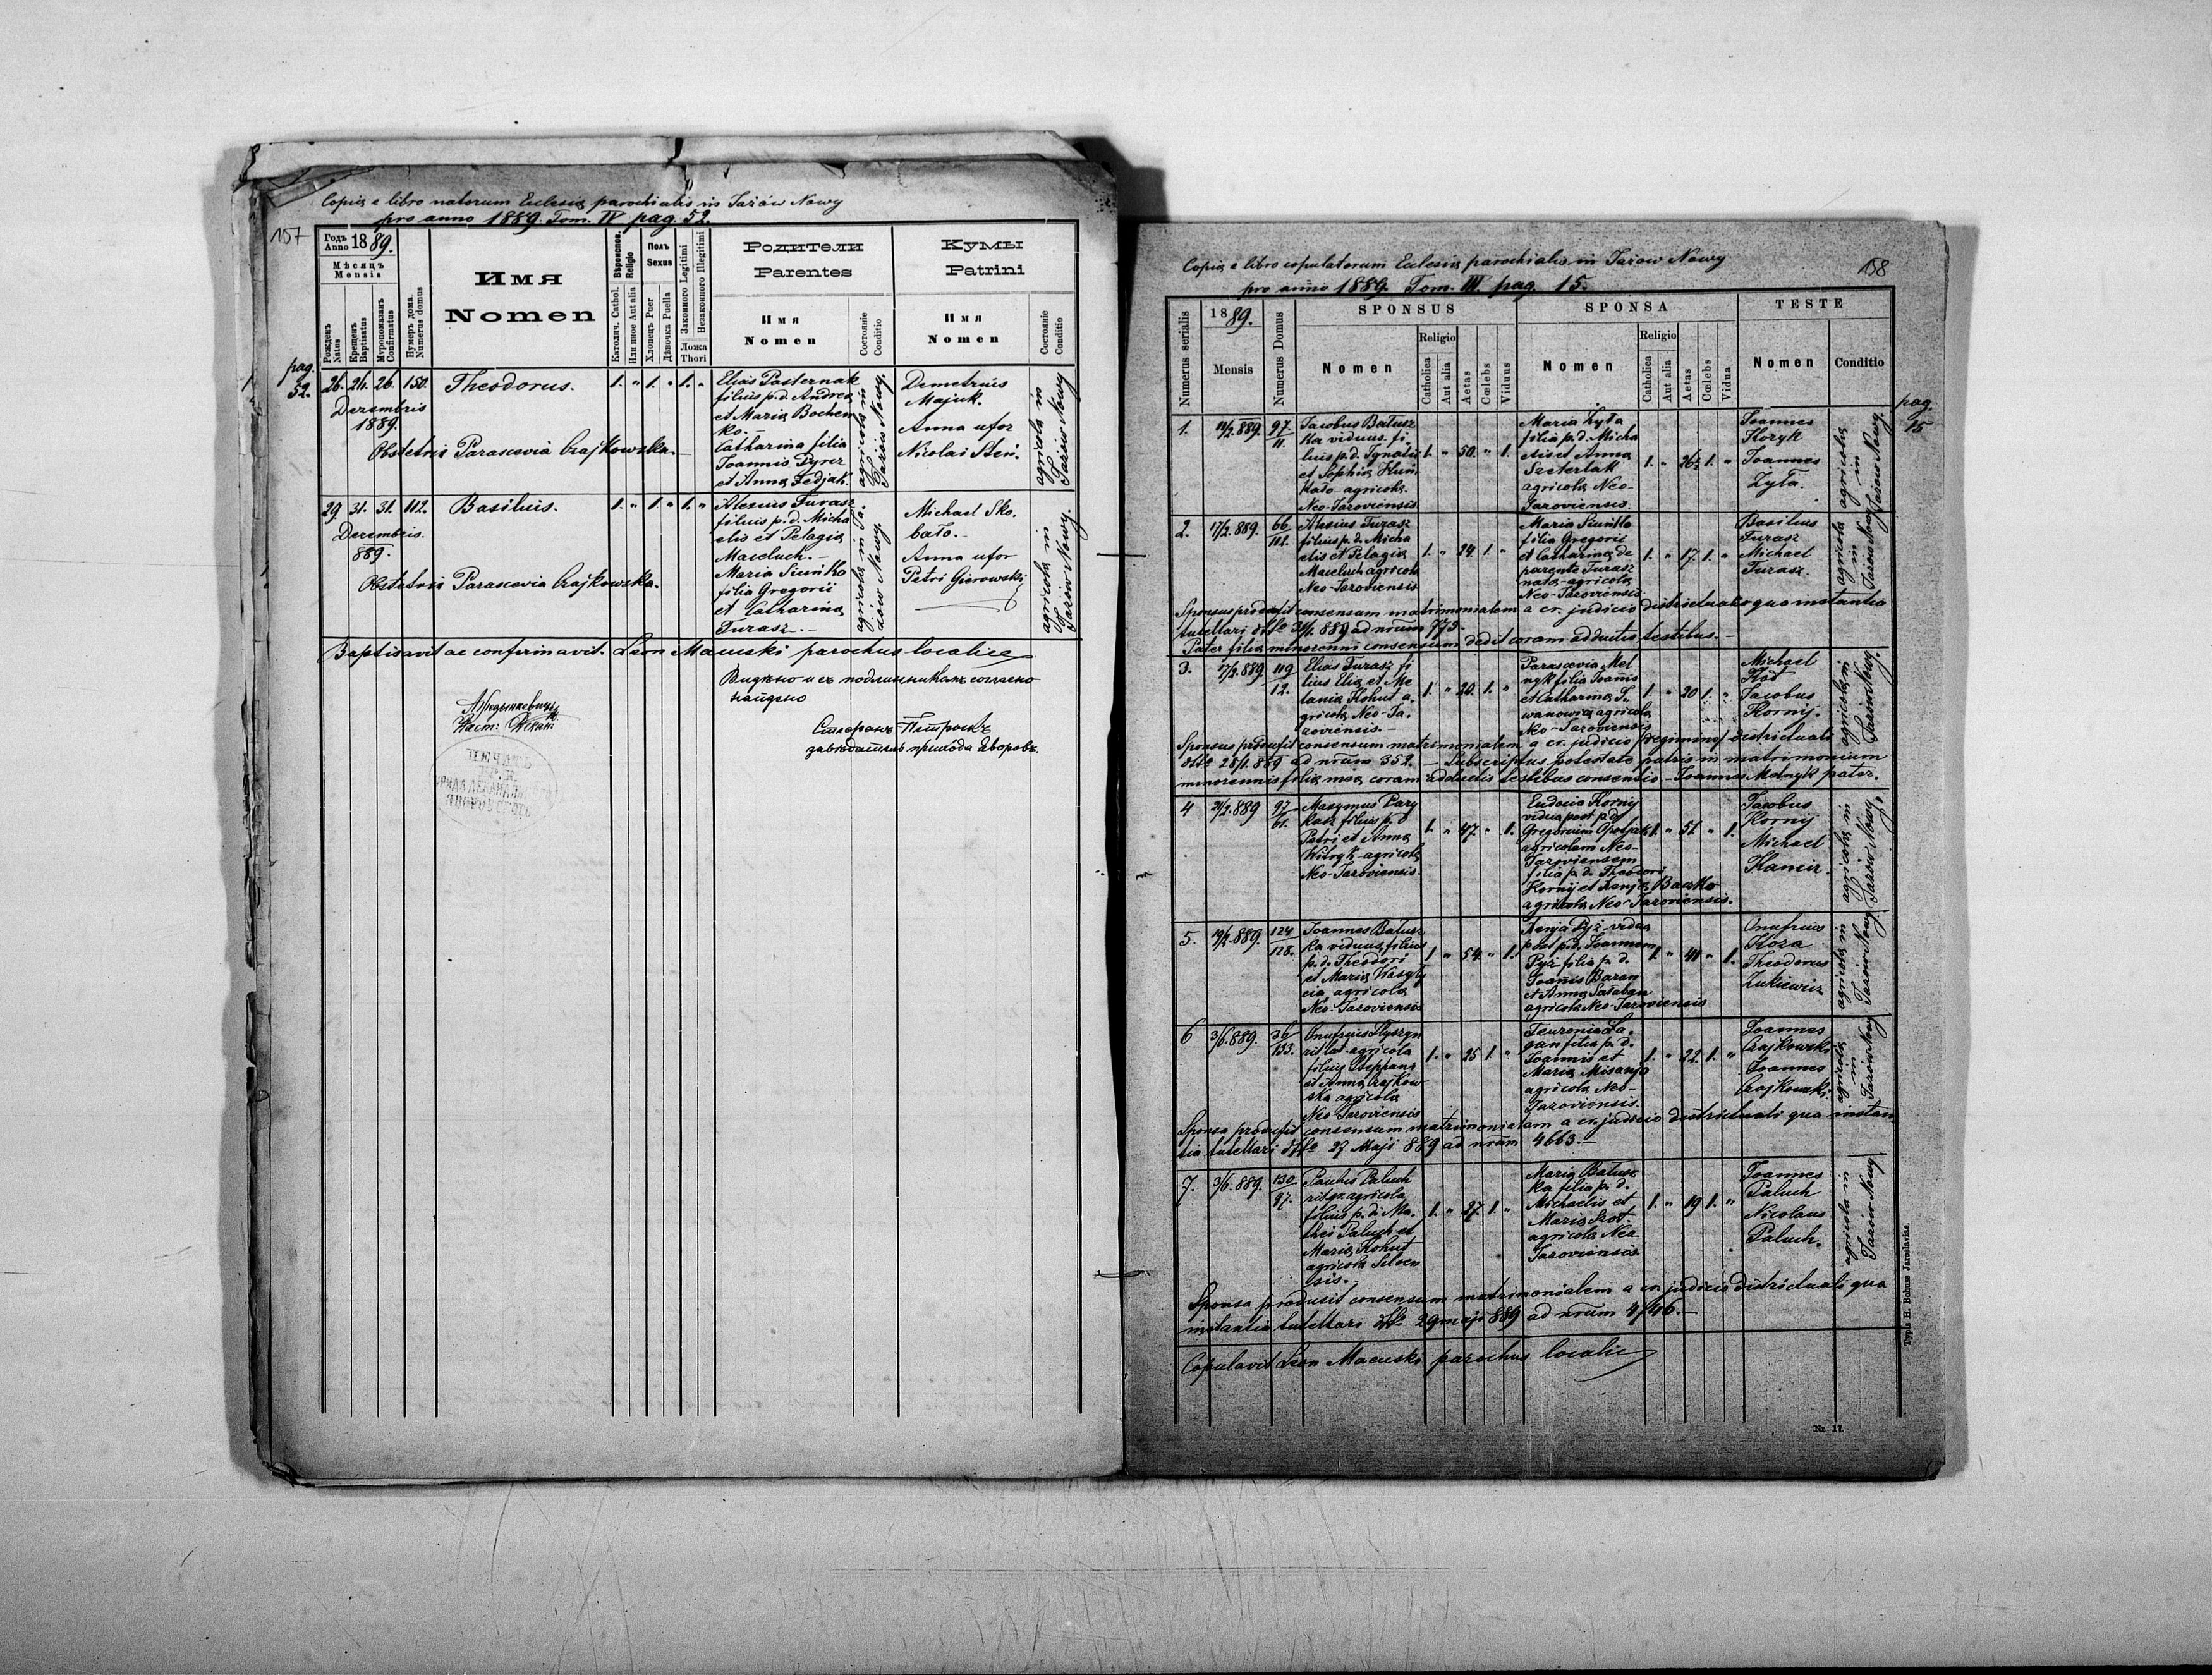 Copia e libro natorum Eclesiæ parochialis in Jażów Nowy
pro anno 1889. Tom. IV pag. 52.
157
Годъ
Anno 1889.
Мѣсяцъ
Mensis
Рожденъ
Natus
Крещенъ
Baptisatus
Мѵропомазан
Confirmatus
Нумеръ дома.
Numerus domus
Имя
Nomen
Вѣроиспов.
Religio
Католич. Cathol.
Или иное Aut alia
Полъ
Sexus
Хлопецъ Puer
Дѣвочка Puella
Законного Legitimi
Незаконного Illegitimi
Ложа
Thori
Родители
Parentes
Имя
Nomen
Состояніе
Conditio
Кумы
Patrini
Имя
Nomen
Состояніе
Conditio
pag.
52.
26. 26. 26. 150. Theodorus. 1. " 1. " 1. "
Dezembris
1889.
Obstetrix Parascevia Czajkowska.
Elias Pasternak
filius p. d. Andreæ
et Maria Bochen
ko.
Catharina filia
Joannis Pyrcz
et Anna Fedjak.
agricolæ in
Jażów Nowy.
Demetrius
Majuk.
Anna uxor
Nicolai Steń.
agricolæ in
Jażów Nowy
29. 31. 31. 112. Basilius. 1. " 1. " 1. "
Dezembris.
889.
Obstetrix Parascevia Czajkowska.
Alexius Furasz
filius p. d. Micha
elis et Pelagia
Maceluch.
Maria Siuńko
filia Gregorii
et Catharina
Furasz.
agricolæ in Ja.
żów Nowy.
Michael Sko.
bało.
Anna uxor
Petri Gierowski
agricolæ in
Jażów Nowy.
Baptisavit ac confirmavit. Leon Macuski parochus localis
Видѣно и съ подлинникомъ согласно
найдено
Стефанъ Петрускъ
завѣдатель прихода
158
Copia e libro copulatorum Eclesiæ parochialis in Jażow Nowy
pro anno 1889. Tom. III. pag. 15.
Numerus serialis
1889.
Mensis
Numerus Domus
SPONSUS
Nomen
Religio
Catholica
Aut alia
Aetas
Cœlebs
Viduus
SPONSA
Nomen
Religio
Catholica
Aut alia
Aetas
Cœlebs
Vidua
TESTE
Nomen
Conditio
pag.
15
1. 11/2.889. 97. 11.
Jacobus Batusz
ka viduus. fi.
lius p.d. Ignatii
et Sophia Huń
kało agricola
Neo-Jazoviensis
1. " 50. " 1.
Maria Żyła
filia p.d. Micha
elis et Anna
Szetertak
agricola Neo-
Jazoviensis.
1. " 26½ 1. "
Joannes
Kozyk
Joannes
Żyła.
agricolæ
in
Jażow Nowy.
2. 17/2.889. 66 112.
Alexius Furasz
filius p. d. Micha
elis et Pelagia
Maceluch agricola
Neo Jazoviensis
1. " 24. 1. "
Maria Siuńko
filia Gregorii
et Catharina de
parente Furasz
nata-agricola
Neo-Jazoviensis
1. " 17. 1. "
Basilius
Furasz
Michael
Furasz.
agricolæ
in
Jażow Nowy
Sponsus produxit consensum matrimonialem a cr. judicio districtuali qua instantia
tutellari ddto 31/1. 889 ad nrum 773.
Pater filiæ minorenni consensum dedit coram adductis testibus.
3. 17/2.889. 119 12.
Elias Furasz fi
lius Elia et Me
lania Kohut a.
gricola Neo-Ja.
zoviensis.
1. " 20. 1. "
Parascevia Mel
nyk filia Joannis
et Catharina I.
wanowicz agricola
Neo-Jazoviensis
1. " 20 1. "
Michael
Kot
Jacobus
Kornij.
agricolæ in
Jażów Nowy.
Sponsus produxit consensum matrimonialem a cr. judicio (regimine) districtuali
ddto 28/1. 889 ad nrum 352. Subscriptus potestate patris in matrimonium
minorennis filiæ meæ coram adductis testibus consentio - Joannes Melnyk pater.
4 21/2.889 97 61.
Maxymus Pary
kasz filius p. d
Petri et Anna
Witryk-agricola
Neo-Jazoviensis.
1. " 47. " 1.
Eudocia Kornij
vidua post p.d.
Gregorium Opoljak
agricolam Neo-
Jazoviensem
filia p. d. Theodori
Kornij et Xenja Baczko
agricola Neo-Jazoviensis.
1. " 51 " 1.
Jacobus
Kornij
Michael
Kamin.
agricolæ in
Jażów Nowy.
5. 19/2.889. 124 128.
Joannes Batusz
ka viduus filius
p. d. Theodori
et Maria Wasyly
cia agricola
Neo-Jazoviensis
1 " 54. " 1.
Xenja Pyż vidua
post p.d. Joannem
Pyż filia p. d.
Joannis Baran
et Anna Sałabaj
agricola Neo-Jazoviensis
1. " 40 " 1.
Onufrius
Koza
Theodorus
Łukiewicz
agricolæ in
Jażów Nowy
6 3/6.889. 36 133.
Onufrius Hyszyn
rit lat. agricola
filius Stephani
et Anna Czajkow-
ska agricola
Neo Jazoviensis
1. " 25 1. "
Feuronia Ła.
gan filia p. d.
Joannis et
Maria Misanjo
agricola Neo-
Jazoviensis.
1. " 22. 1. "
Joannes
Czajkowski
Joannes
Czajkowski.
agricolæ
in
Jażow Nowy
Sponsa produxit consensum matrimonialem a cr. judicio districtuali qua instan
tia tutellari ddto 27 Maji 889 ad nrum 4663.
7. 3/6.889. 130 97.
Paulus Paluch
rit. gr. agricola
filius p. d. Ma.
thei Paluch et
Maria Kohut
agricola Seloen
sis.
1. " 27. 1. "
Maria Batusz
ka filia p. d.
Michaelis et
Maria Szot.
agricola Neo
Jazoviensis
1. " 19 1. "
Joannes
Paluch
Nicolaus
Paluch.
agricolæ in
Jażów Nowy
Sponsa produxit consensum matrimonialem a cr. judicio districtuali qua
instantia tutellari ddto 29 maji 889 ad nrum 4746.
Copulavit Leon Macuski parochus localis
Typis H. Bohuss Jaroslaviae.
Nr. 17.